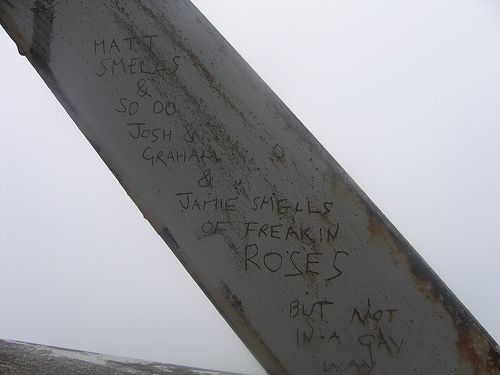 MATT
SMELLS
&
SO DO
JOSH &
GRAHAM
&
JAMIE SMELLS
OF FREAKIN
ROSES
BUT NOT
IN A GAY
WAY